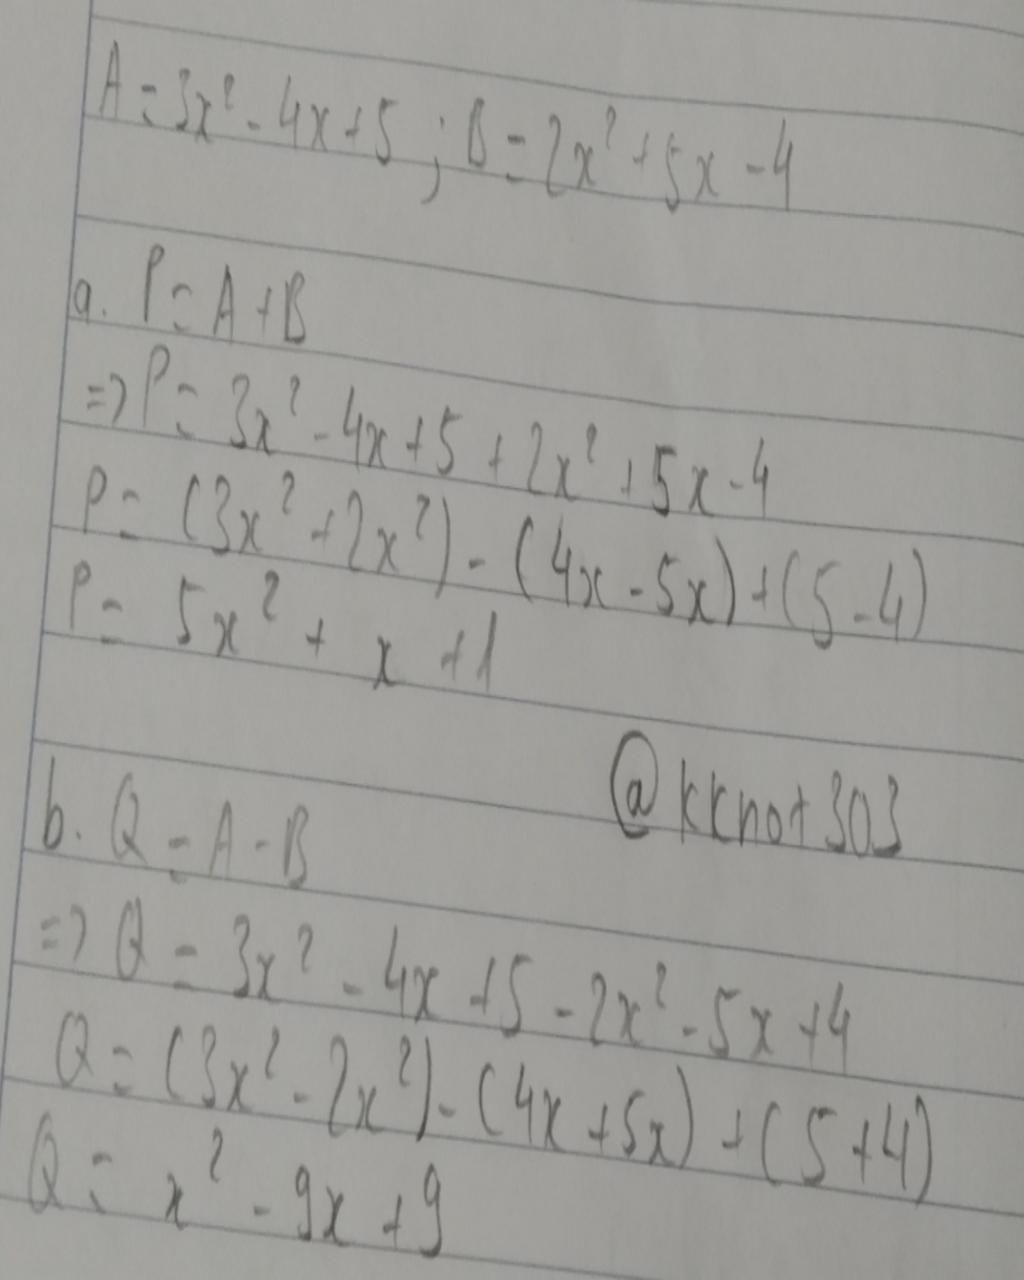 A = 3x² - 4x + 5 ; B = 2x² + 5x - 4
a. P = A + B
=> P = 3x² - 4x + 5 + 2x² + 5x - 4
P = (3x² + 2x²) - (4x - 5x) + (5 - 4)
P = 5x² + x + 1
@kknot303
b. Q = A - B
=> Q = 3x² - 4x + 5 - 2x² - 5x + 4
Q = (3x² - 2x²) - (4x + 5x) + (5 + 4)
Q = x² - 9x + 9